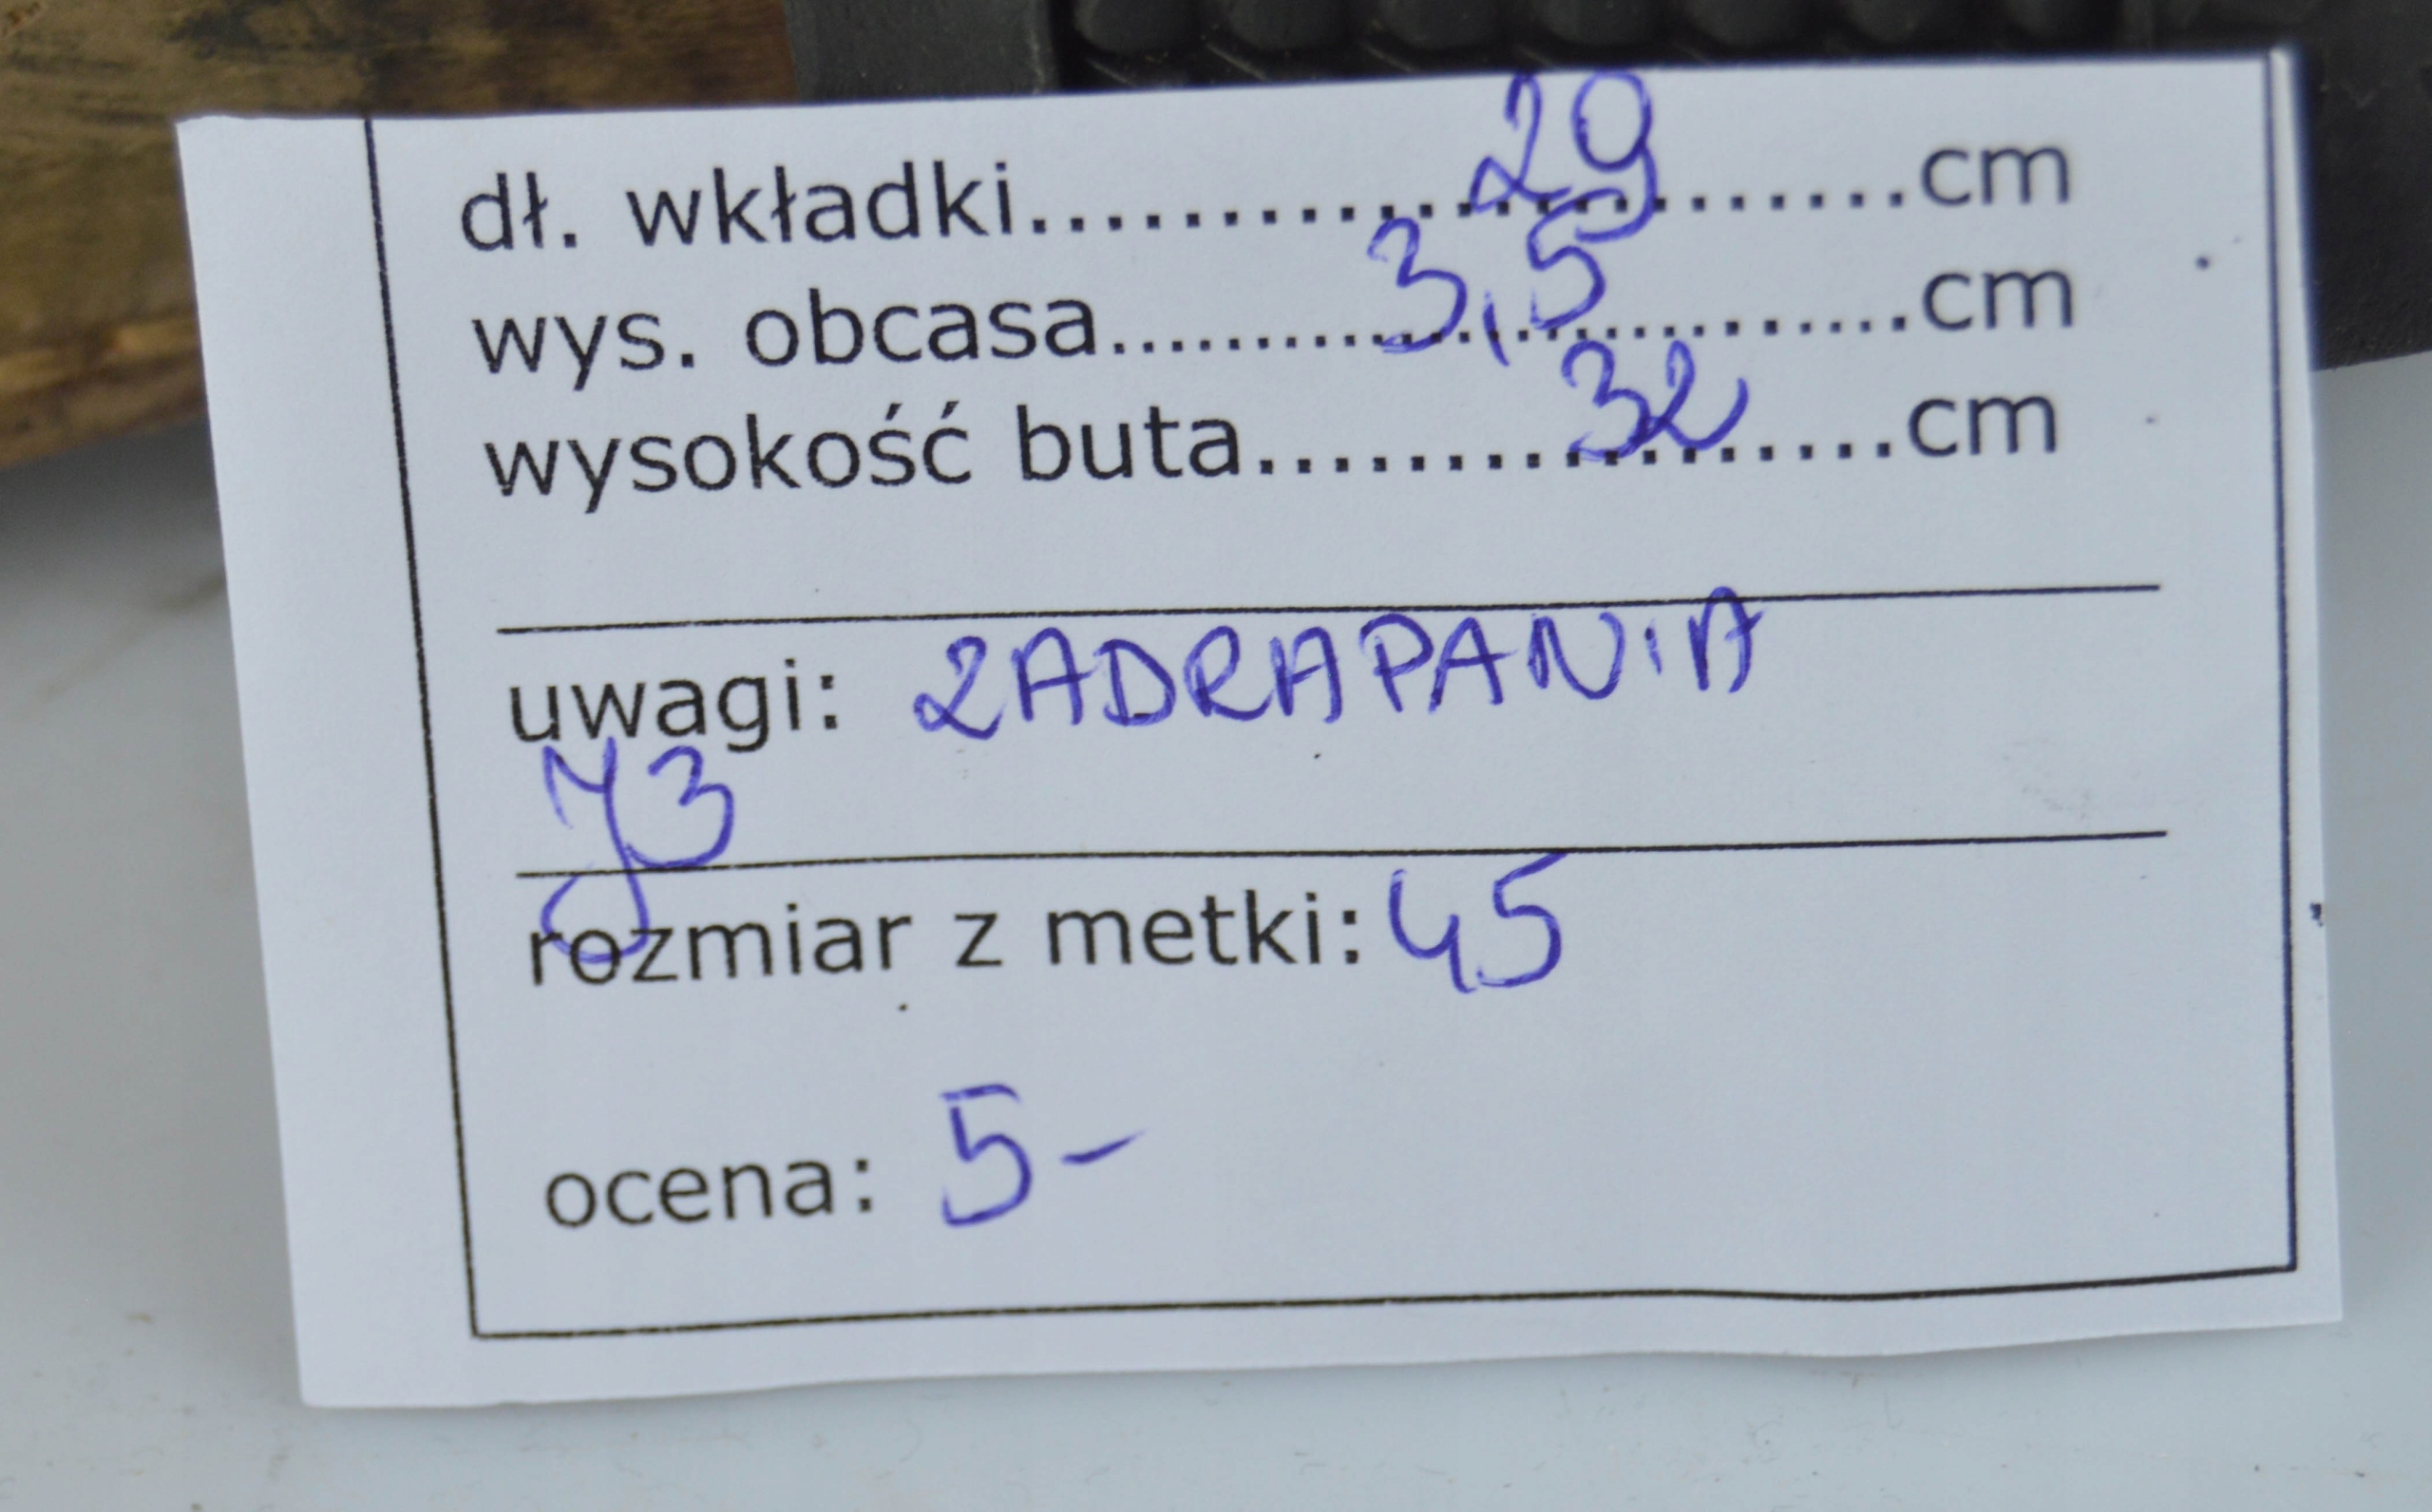 dł. wkładki...............29...........cm
wys. obcasa...............3,5...............cm
wysokość buta...............32........cm
uwagi: ZADRAPANIA
rozmiar z metki: 45
ocena: 5-